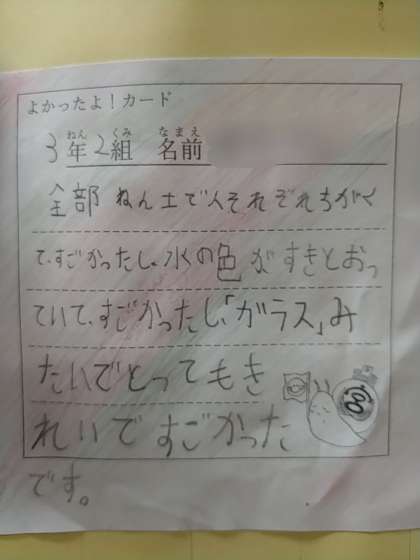 よかったよ！カード
3年2組 名前
全部 ねん土で人それぞれちがく
て、すごかったし、水の色がすきとおっ
ていて、すごかったし、「ガラス」み
たいでとってもき
れいですごかった
です。